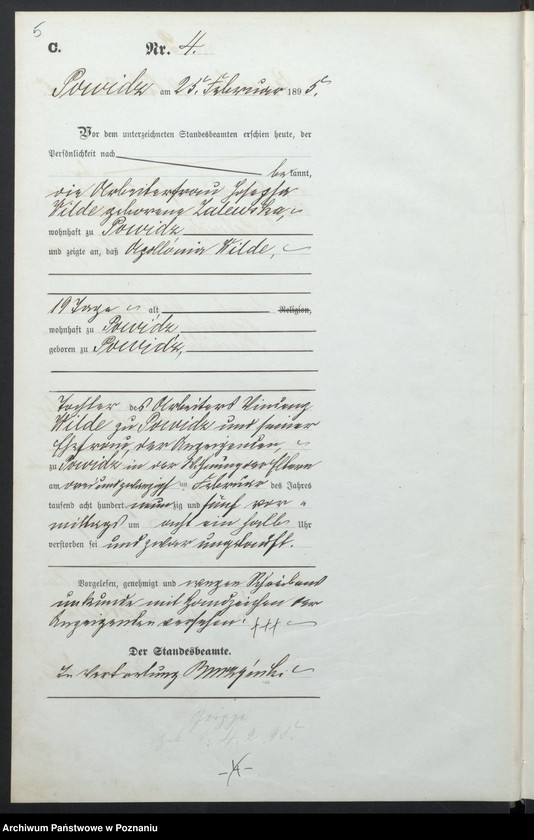 5
C. Nr. 4.
Powidz am 25ᵗ Februar 1895.
Vor dem unterzeichneten Standesbeamten erschien heute, der
Persönlichkeit nach
bekannt,
die Arbeiterfrau Josepha
Wilde geborene Zalewska,
wohnhaft zu Powidz
und zeigte an, daß Apollonia Wilde,
19 Tage alt Religion,
wohnhaft zu Powidz
geboren zu Powidz,
Tochter des Arbeiters Vincenz
Wilde zu Powidz und seiner
Ehefrau, der Anzeigenden,
zu Powidz in der Wohnung der Eltern
am dreiundzwanzigsten Februar des Jahres
tausend acht hundert neunzig und fünf vor-
mittags um acht ein halb Uhr
verstorben sei und zwar ungetauft.
Vorgelesen, genehmigt und wegen Schreibens
unkunde mit Handzeichen der
Anzeigenden versehen. +++
Der Standesbeamte.
In Vertretung
Archiwum Państwowe w Poznaniu